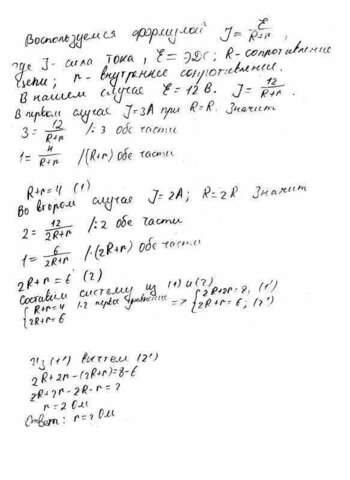 Воспользуемся формулой J = E/(R+r),
где J - сила тока, E = ЭДС; R - сопротивление
цепи; r - внутреннее сопротивление.
В нашем случае E = 12 В. J = 12/(R+r).
В первом случае J=3A при R=R. Значит
3 = 12/(R+r) /:3 обе части
1 = 4/(R+r) /(R+r) обе части
R+r=4 (1)
Во втором случае J=2A; R=2R Значит
2 = 12/(2R+r) /:2 обе части
1 = 6/(2R+r) /·(2R+r) обе части
2R+r=6 (2)
Составим систему из (1) и (2)
{R+r=4 |·2 первое уравнение => {2R+2r=8; (1')
{2R+r=6 {2R+r=6; (2')
Из (1') вычтем (2')
2R+2r-(2R+r)=8-6
2R+2r-2R-r=2
r=2 Ом
Ответ: r=2 Ом